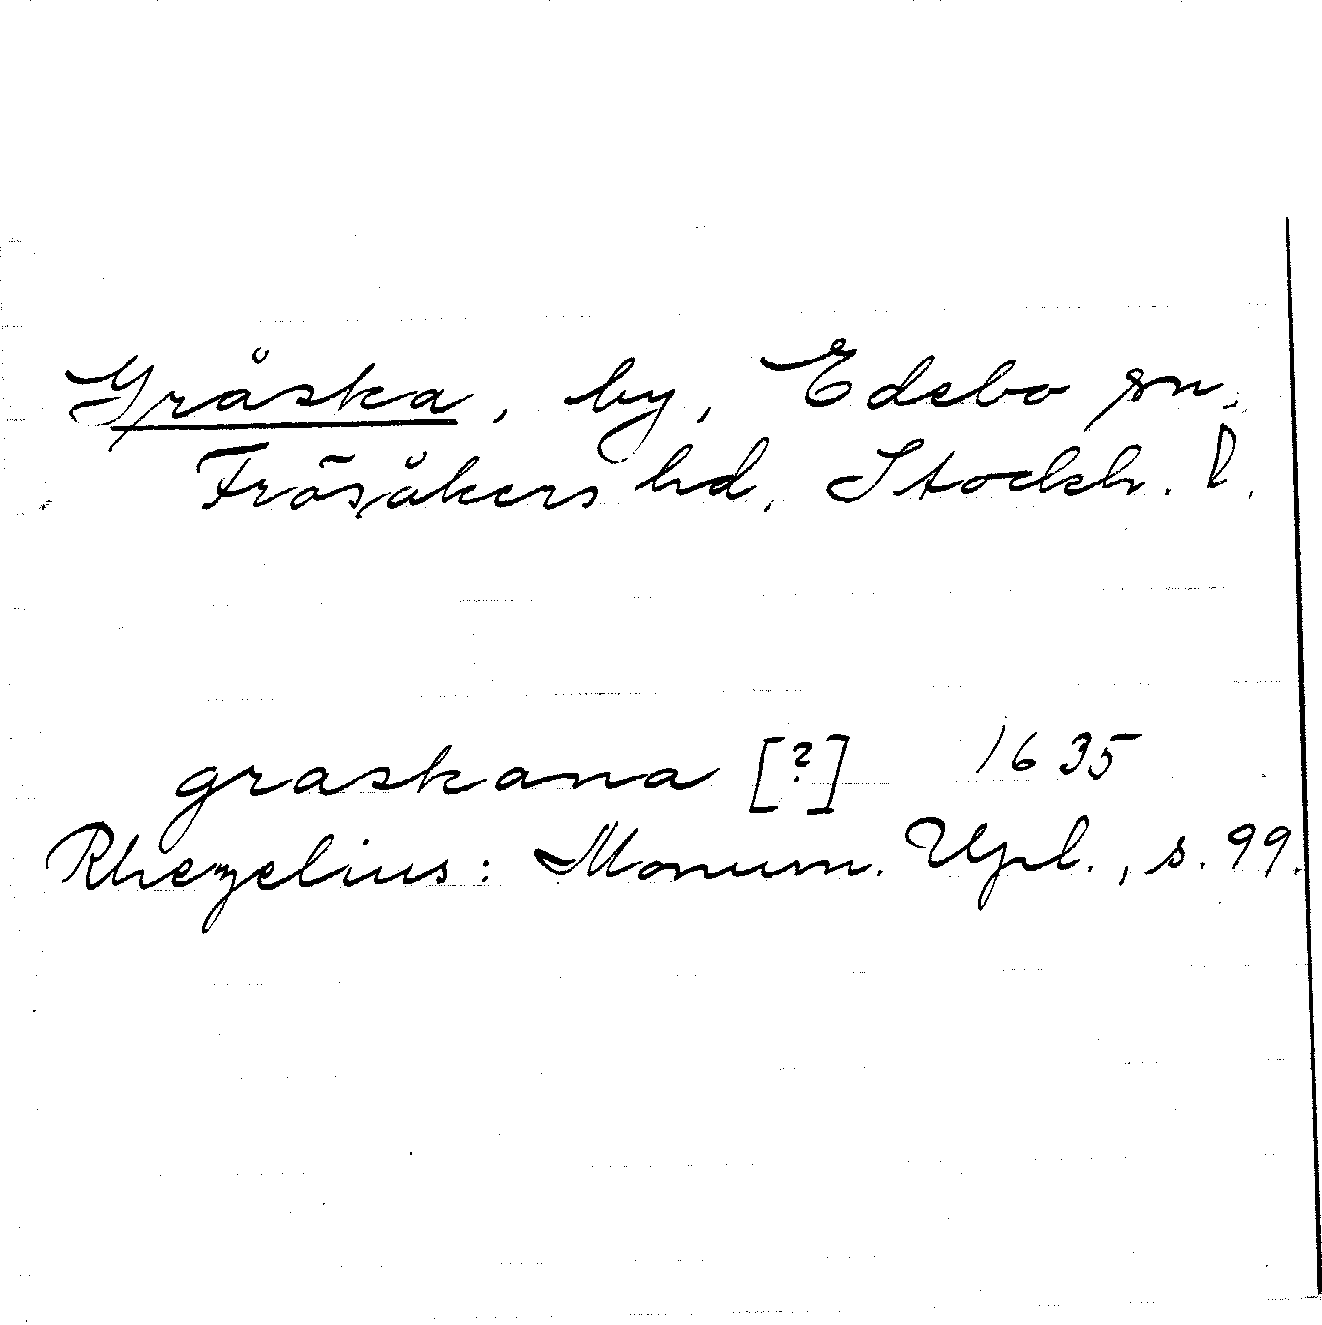 Gråska, by, Edebo sn.
Frösåkers hd, Stockh. l.
graskana [?] 1635
Rhezelius: Monum. Upl., s. 99.